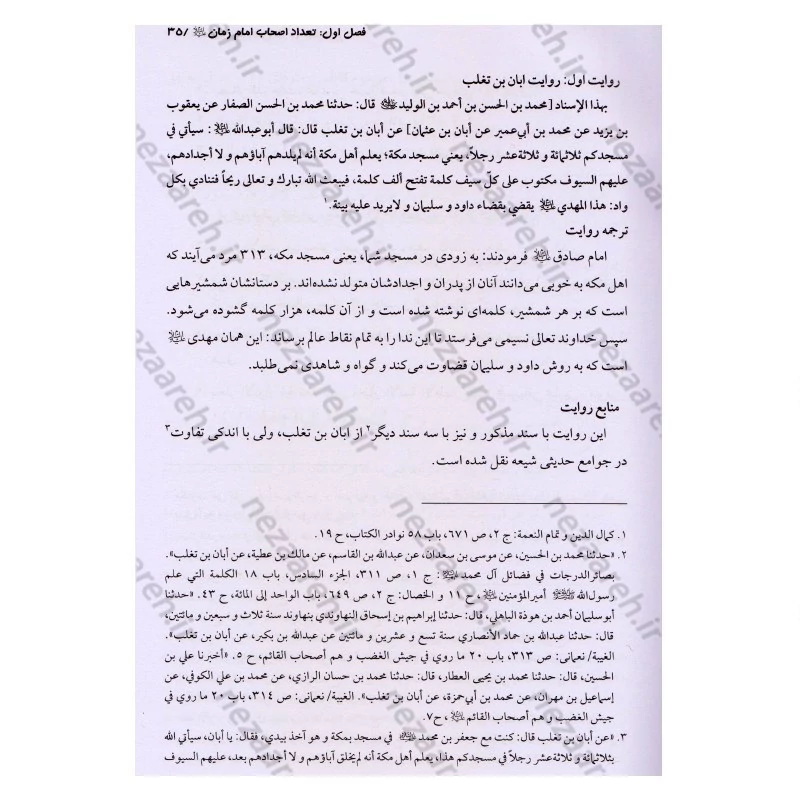 فصل اول: تعداد اصحاب امام زمان ﷷ /۳۵
روایت اول: روایت ابان بن تغلب
بهذا الإسناد [محمد بن الحسن بن أحمد بن الولید قال: حدثنا محمد بن الحسن الصفار عن یعقوب
بن یزید عن محمد بن أبي‌عمیر عن أبان بن عثمان] عن أبان بن تغلب قال: قال أبوعبدالله: سیأتي في
مسجدکم ثلاثمائة و ثلاثةعشر رجلاً، یعني مسجد مکة؛ یعلم أهل مکة أنه لم‌یلدهم آباؤهم و لا أجدادهم،
علیهم السیوف مکتوب علی کلّ سیف کلمة تفتح ألف کلمة، فیبعث الله تبارك و تعالی ریحاً فتنادي بکل
واد: هذا المهدي یقضي بقضاء داود و سلیمان و لایرید علیه بینة.۱
ترجمه روایت
امام صادق فرمودند: به زودی در مسجد شما، یعنی مسجد مکه، ۳۱۳ مرد می‌آیند که
اهل مکه به خوبی می‌دانند آنان از پدران و اجدادشان متولد نشده‌اند. بر دستانشان شمشیرهایی
است که بر هر شمشیر، کلمه‌ای نوشته شده است و از آن کلمه، هزار کلمه گشوده می‌شود.
سپس خداوند تعالی نسیمی می‌فرستد تا این ندا را به تمام نقاط عالم برساند: این همان مهدی
است که به روش داود و سلیمان قضاوت می‌کند و گواه و شاهدی نمی‌طلبد.
منابع روایت
این روایت با سند مذکور و نیز با سه سند دیگر۲ از ابان بن تغلب، ولی با اندکی تفاوت۳
در جوامع حدیثی شیعه نقل شده است.
۱. کمال الدین و تمام النعمة: ج ۲، ص ۶۷۱، باب ۵۸ نوادر الکتاب، ح ۱۹.
۲. «حدثنا محمد بن الحسین، عن موسی بن سعدان، عن عبدالله بن القاسم، عن مالك بن عطیة، عن أبان بن تغلب».
بصائرالدرجات في فضائل آل محمد: ج ۱، ص ۳۱۱، الجزء السادس، باب ۱۸ الکلمة التي علم
رسول‌الله أمیرالمؤمنین، ح ۱۱ و الخصال: ج ۲، ص ۶۴۹، باب الواحد إلی المائة، ح ۴۳. «حدثنا
أبوسلیمان أحمد بن هوذة الباهلي، قال: حدثنا إبراهیم بن إسحاق النهاوندي بنهاوند سنة ثلاث و سبعین و مائتین،
قال: حدثنا عبدالله بن حماد الأنصاري سنة تسع و عشرین و مائتین عن عبدالله بن بکیر، عن أبان بن تغلب».
الغیبة/ نعمانی: ص ۳۱۳، باب ۲۰ ما روي في جیش الغضب و هم أصحاب القائم، ح ۵. «أخبرنا علي بن
الحسین، قال: حدثنا محمد بن یحیی العطار، قال: حدثنا محمد بن حسان الرازي، عن محمد بن علي الکوفي، عن
إسماعیل بن مهران، عن محمد بن أبي‌حمزة، عن أبان بن تغلب». الغیبة/ نعمانی: ص ۳۱۴، باب ۲۰ ما روي في
جیش الغضب و هم أصحاب القائم، ح۷.
۳. «عن أبان بن تغلب قال: کنت مع جعفر بن محمد في مسجد بمکة و هو آخذ بیدي، فقال: یا أبان، سیأتي الله
بثلاثمائة و ثلاثةعشر رجلاً في مسجدکم هذا، یعلم أهل مکة أنه لم‌یخلق آباؤهم و لا أجدادهم بعد، علیهم السیوف
nezaareh.ir